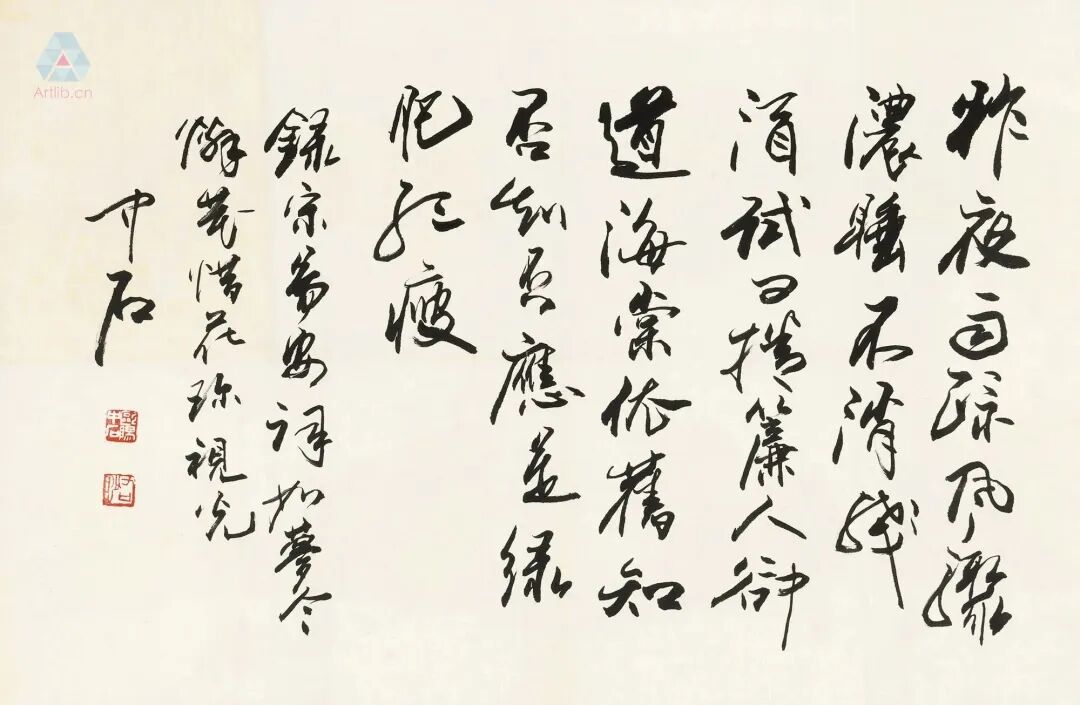 昨夜雨疏風驟
濃睡不消殘
酒試問捲簾人卻
道海棠依舊知
否知否應是緑
肥紅瘦
録宋易安詞如夢令
惜花珍視
中石
Artlib.cn